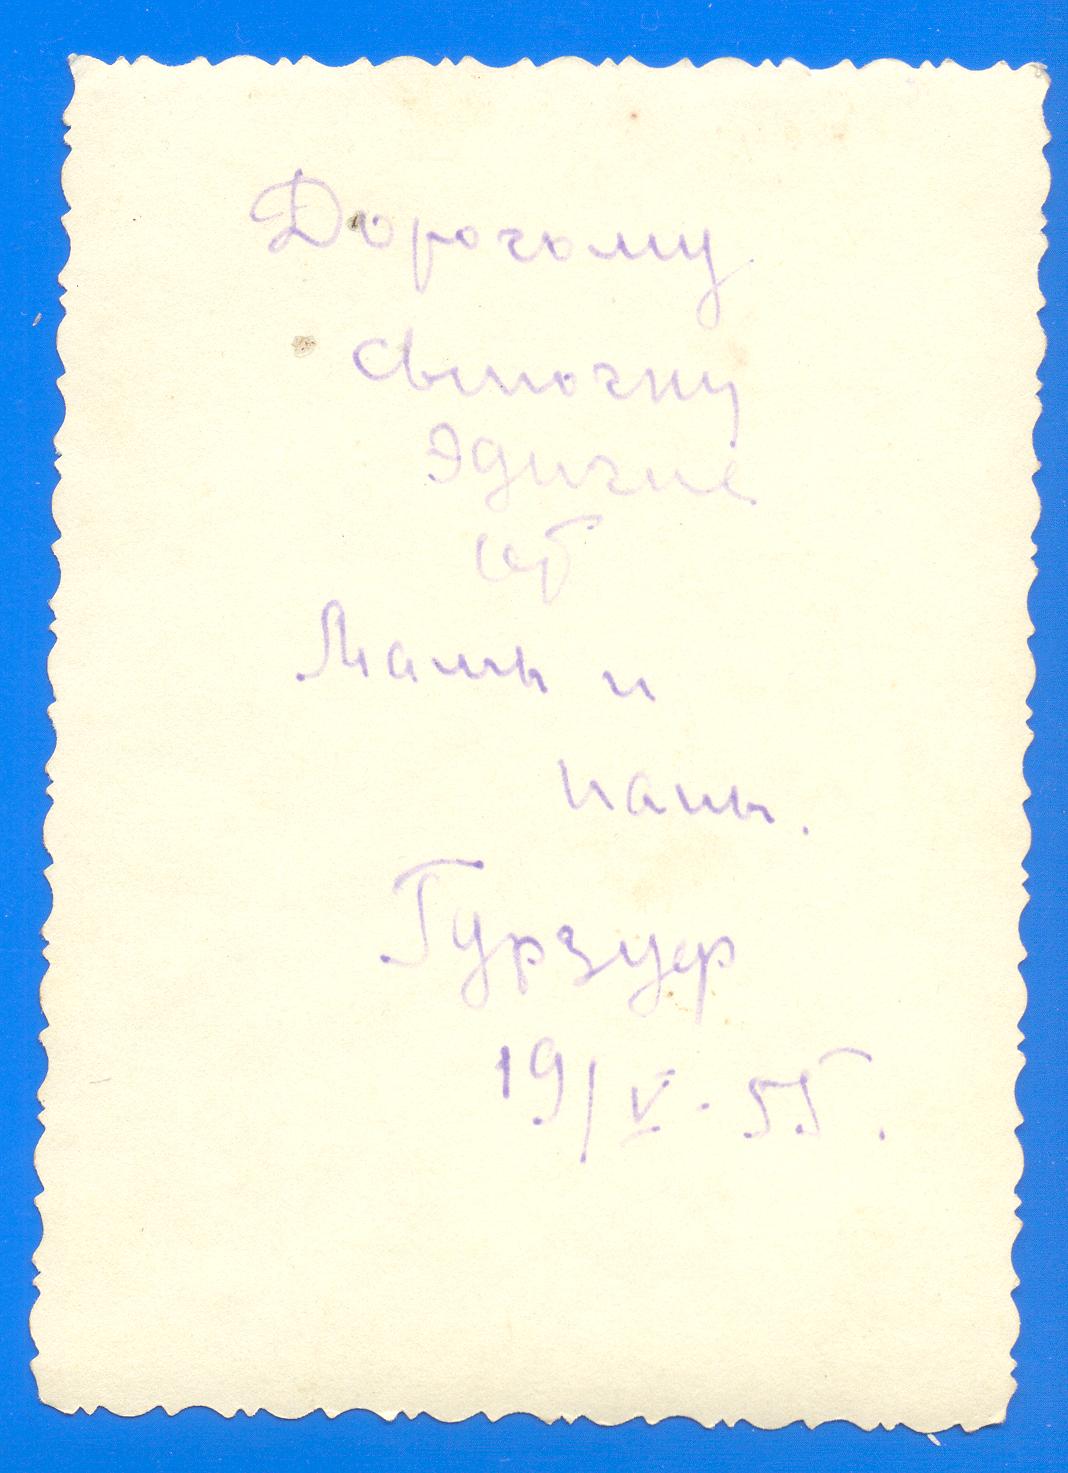 Дорогому
сыночку
Эдичке
от
Мамы и
папы.
Гурзуф
19/V-55.